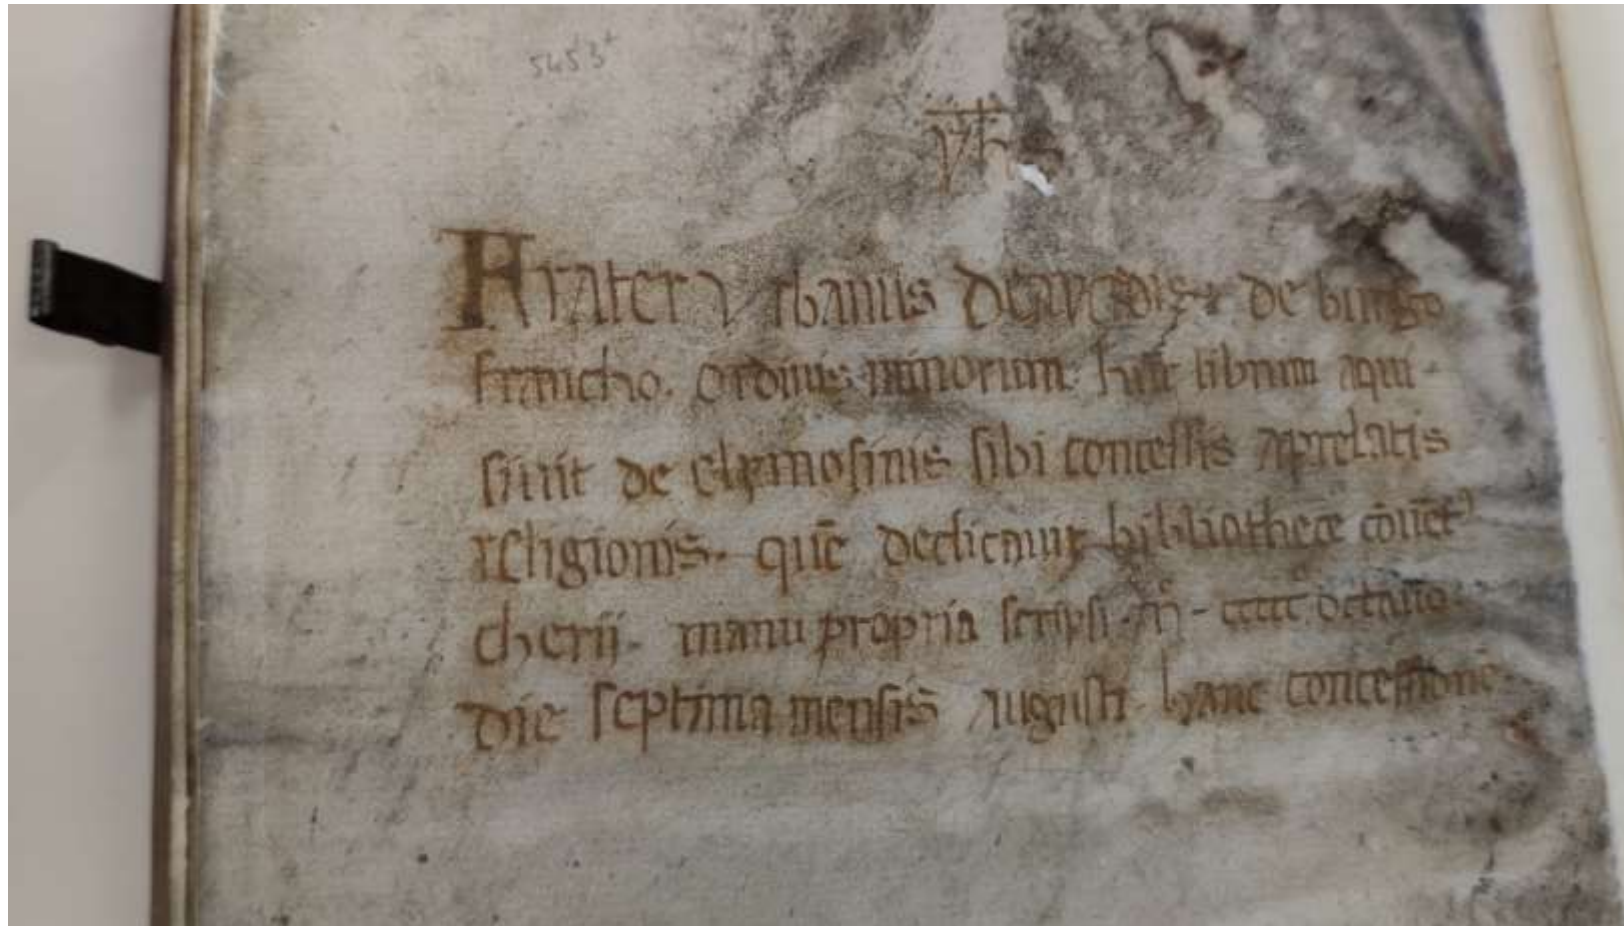 5453+
yħ
Frater Urbanus de de burgo
francho. ordinis minorum. hūc librum aqui-
sivit de elemosinis sibi concessis a prelatis
religionis. quē dedicavit bibliothece cōvēt⁹
cherij. manu propria scripsi. Mº. cccc octavo.
die septima mensis Augusti. hanc concessionē.